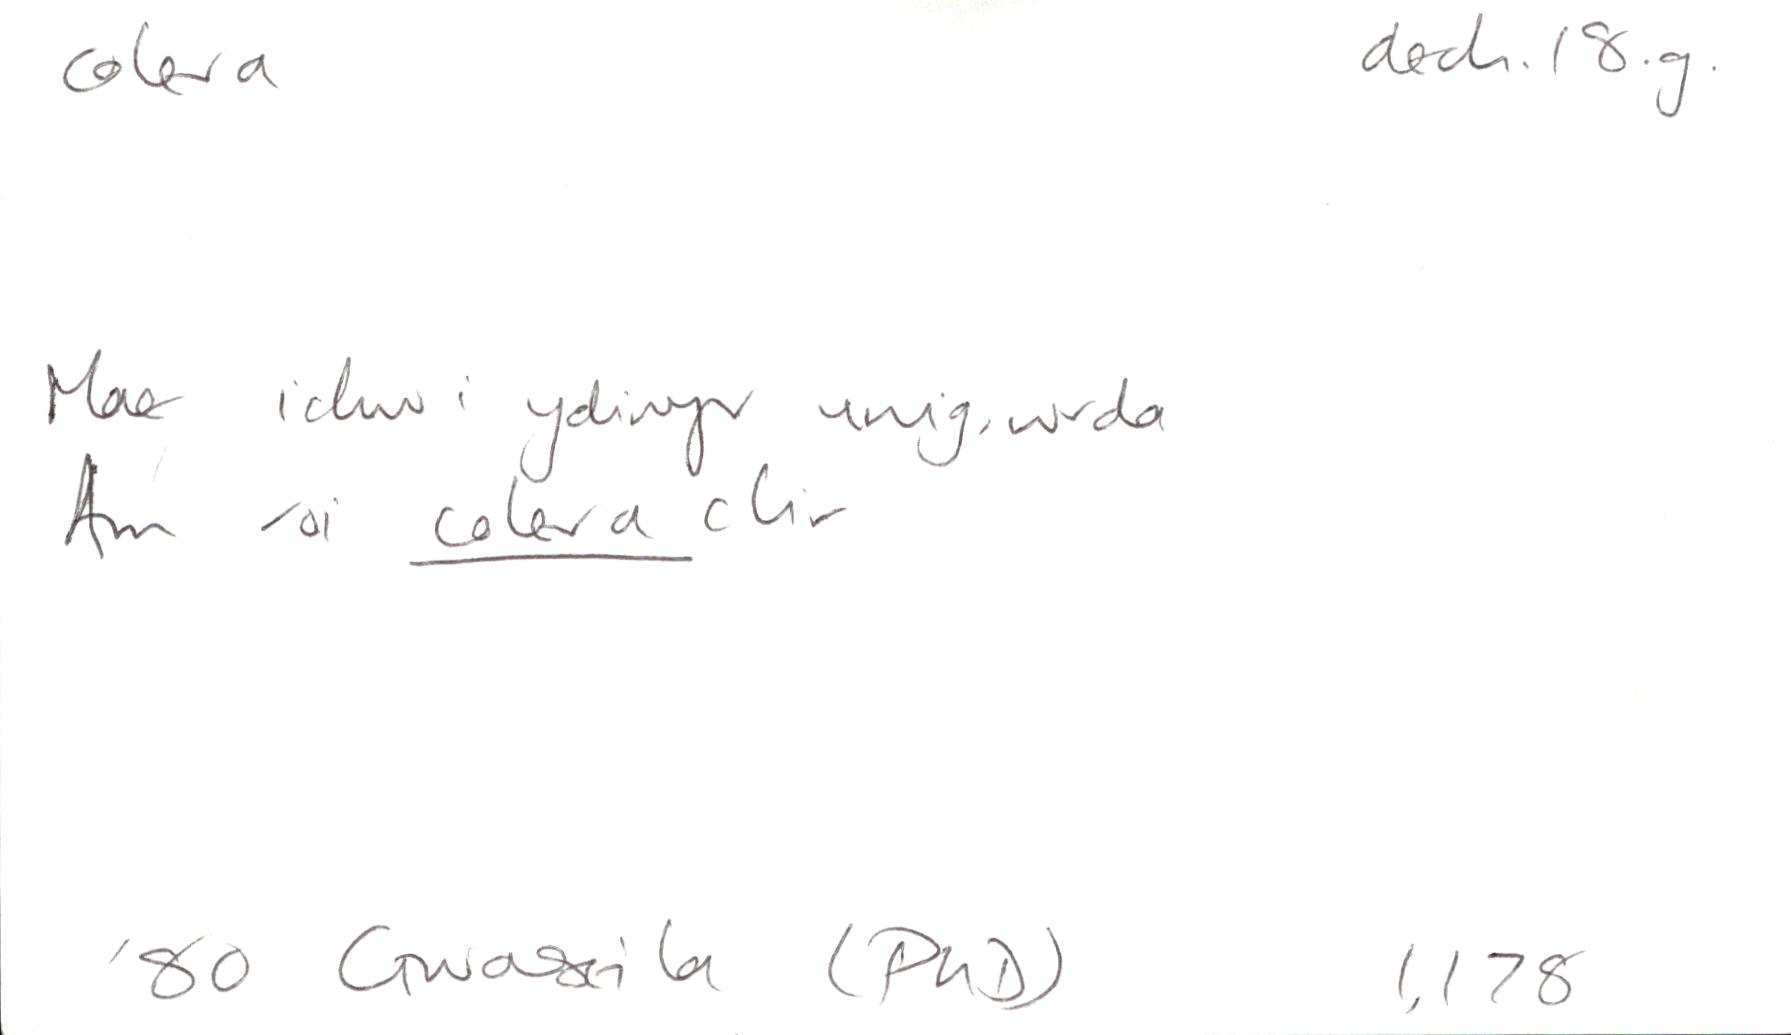 colera dech. 18.g.
Mae ichwi ydingr unig, wrda
Am roi colera clir
'80 Gwaszila (PhD) 1,178